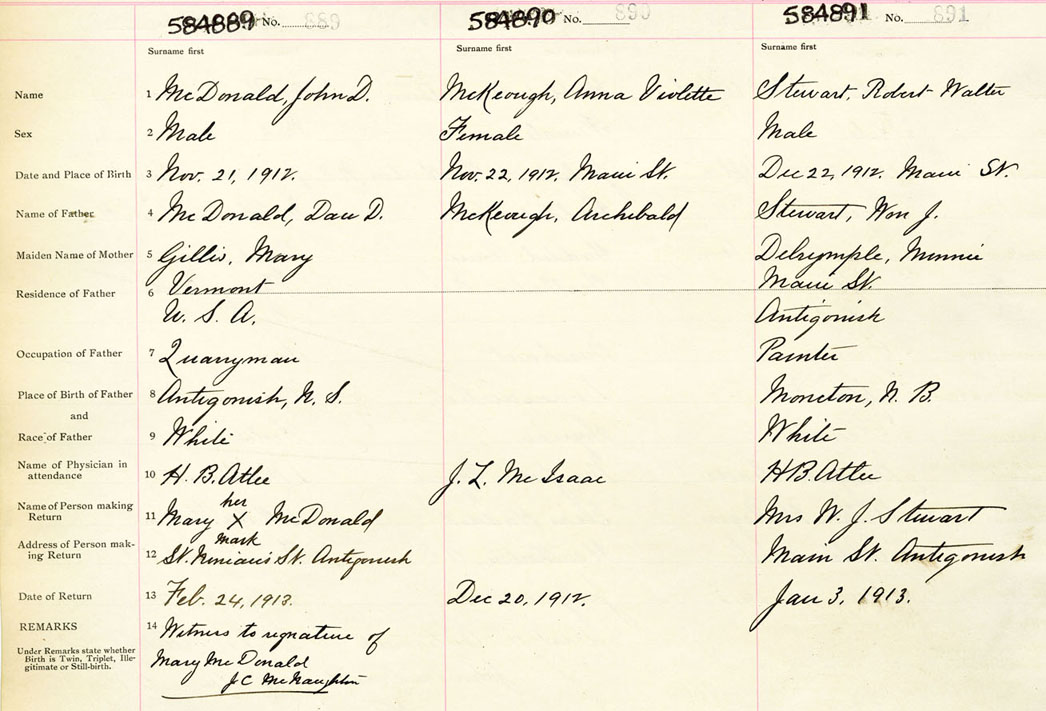 584889 No. 889 584890 No. 890 584891 No. 891
Surname first Surname first Surname first
Name 1 McDonald, John D. McKeough, Anna Violette Stewart, Robert Walter
Sex 2 Male Female Male
Date and Place of Birth 3 Nov. 21, 1912. Nov. 22, 1912. Main St. Dec 22, 1912. Main St.
Name of Father 4 McDonald, Dan D. McKeough, Archibald Stewart, Wm J.
Maiden Name of Mother 5 Gillis, Mary Delrymple, Minnie
Residence of Father 6 Vermont Main St.
U. S. A. Antigonish
Occupation of Father 7 Quarryman Painter
Place of Birth of Father 8 Antigonish, N. S. Moncton, N. B.
and
Race of Father 9 White White
Name of Physician in attendance 10 H. B. Atlee J. L. McIsaac H B. Atlee
her
Name of Person making Return 11 Mary X McDonald Mrs W. J. Stewart
mark
Address of Person mak-ing Return 12 St. Ninian's St. Antigonish Main St. Antigonish
Date of Return 13 Feb. 24, 1913. Dec 20, 1912. Jan 3, 1913.
REMARKS 14 Witness to signature of
Under Remarks state whether
Birth is Twin, Triplet, Ille-
gitimate or Still-birth.
Mary McDonald
J C McNaughton